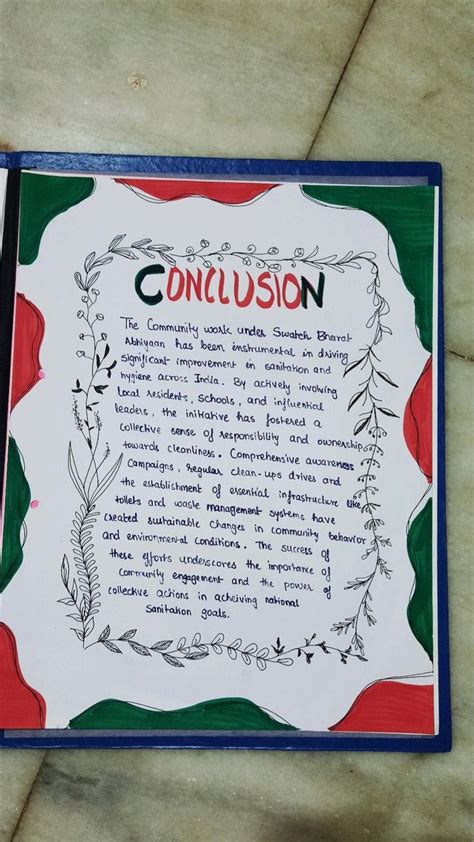 CONCLUSION
The Community work under Swatch Bharat
Abhiyaan has been instrumental in driving
significant improvement in sanitation and
hygiene across India. By actively involving
local residents, schools, and influential
leaders, the initiative has fostered a
collective sense of responsibility and ownership
towards cleanliness. Comprehensive awareness
Campaigns, Regular clean-ups drives and
the establishment of essential infrastructure like
toilets and waste management systems have
created sustainable changes in community behavior
and environmental conditions. The success of
these efforts underscores the importance of
Community engagement and the power of
collective actions in acheiving national
Sanitation goals.